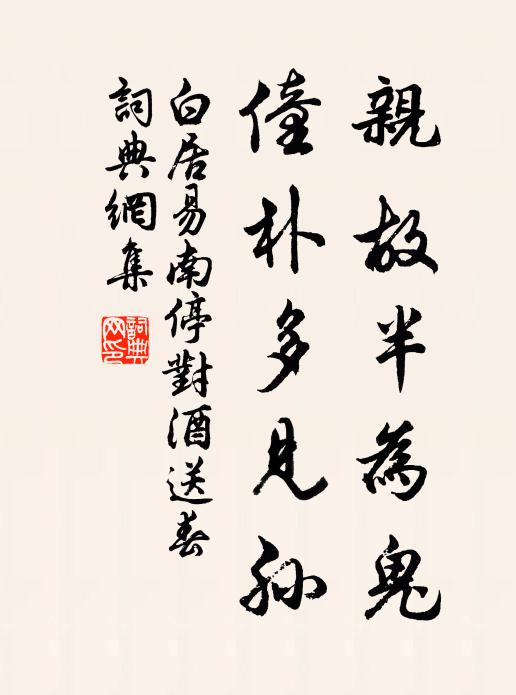 親故半為鬼
僮朴多見孙
白居易南停對酒送春
詞典網集
詞典
网印